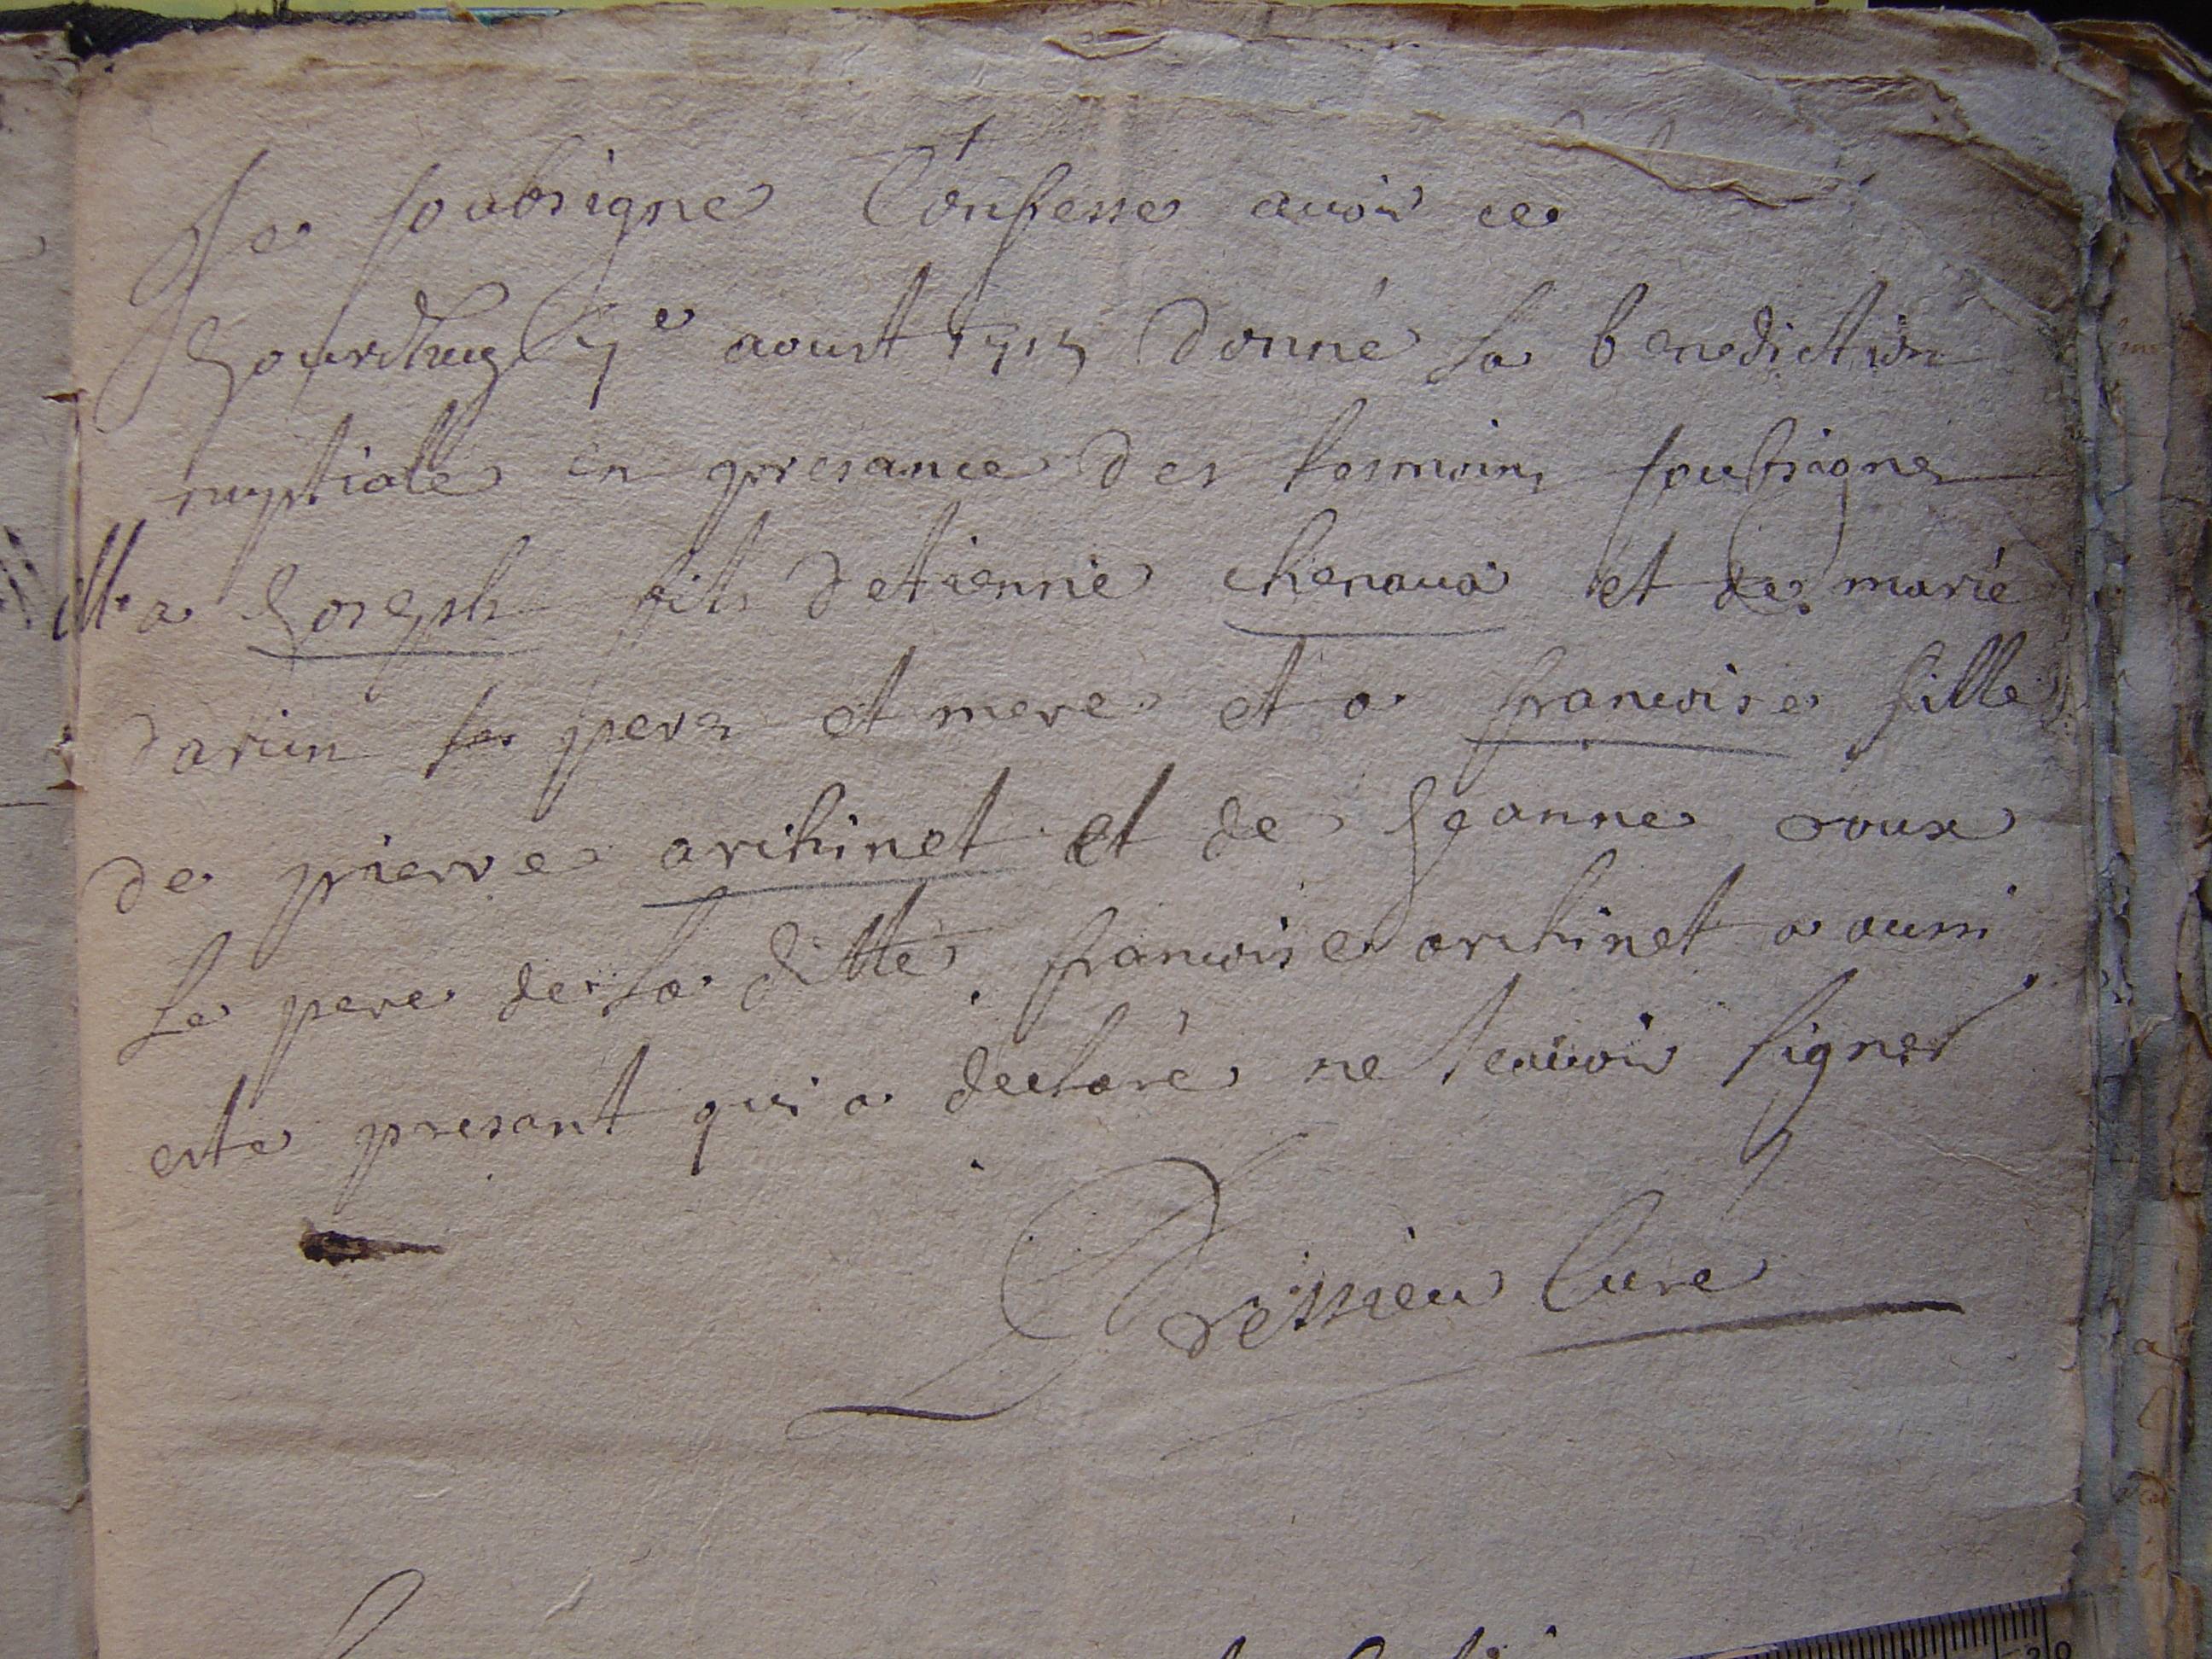 Je soubsigne Confesse avoir ce
Jourdhuy 7e aoust 1715 donné la benediction
nuptialle en presance des tesmoins soubsignes
M. a Joseph fils detienne chenava et de marie
darim ses pere et mere et a francoise fille
de pierre archinet et de Jeanne roux
Le pere de la ditte francoise archinet a aussi
este presant qui a declaré ne scavoir signer
Dressieu Curé